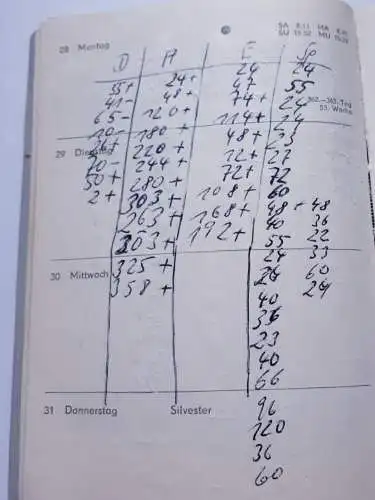 28 Montag
SA 8.11 MA
SU 15.52 MU
D A E Sp
35+ 24+ 24 24
41- 48+ 47 55
65- 120+ 74+ 24
362.-363. Tag
53. Woche
10- 180+ 114+ 24
29 Dienstag
26+ 220+ 48+ 23
70- 244+ 12+ 27
50+ 280+ 72+ 72
2+ 303+ 108+ 60
263+ 168+ 48+ 48
303+ 192+ 40 36
325+ 55 22
358+ 24 33
30 Mittwoch
24 60
40 24
36
23
40
66
31 Donnerstag Silvester
96
120
36
60